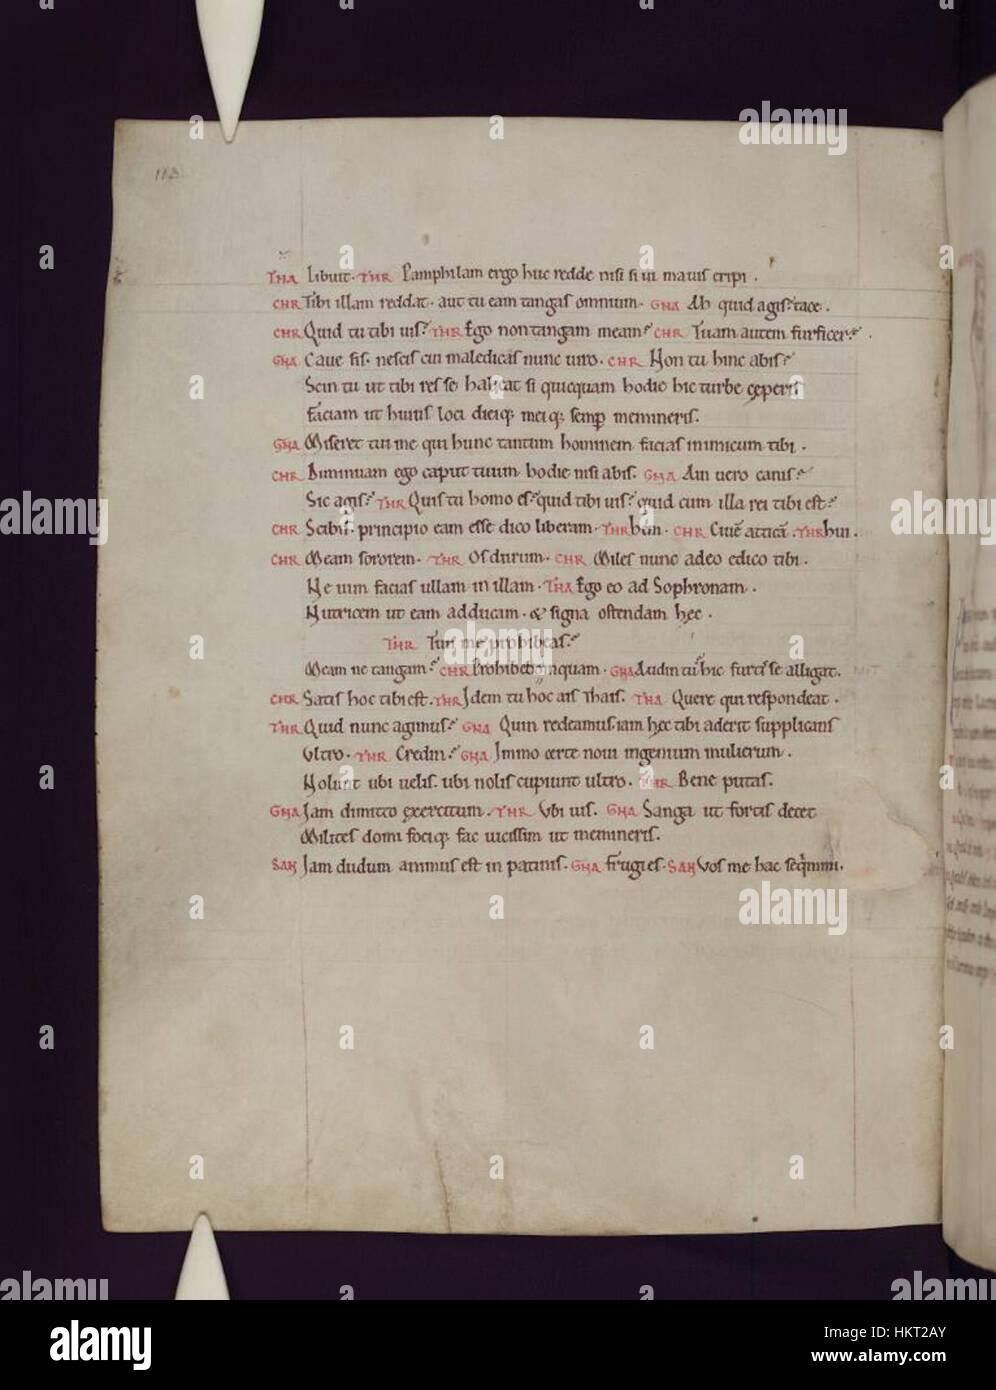 113
THA Libuit. THR Pamphilam ergo huc redde nisi si ui mauis eripi.
CHR Tibi illam reddat. aut tu eam tangas omnium. GNA Ah quid agis? tace.
CHR Quid tu tibi uis? THR Ego non tangam meam? CHR Tuam autem furcifer?
GNA Caue sis. nescis cui maledicas nunc uiro. CHR Non tu hinc abis?
Scin tu ut tibi res se habeat si quicquam hodie hic turbe çeperis
Faciam ut huius loci dieiq; meiq; semp memineris.
GNA Miseret tui me qui hunc tantum hominem facias inimicum tibi.
CHR Diminuam ego caput tuum hodie nisi abis. GNA Ain uero canis?
Sic agis? THR Quis tu homo es? quid tibi uis? quid cum illa rei tibi est?
CHR Scibis. principio eam esse dico liberam. THR hem. CHR Ciuē atticā. THR hui.
CHR Meam sororem. THR Os durum. CHR Miles nunc adeo edico tibi.
Ne uim facias ullam in illam. THA Ego eo ad Sophronam.
Nutricem ut eam adducam. & signa ostendam hec.
THR Tun me prohibeas?
Meam ne tangam? CHR Prohibebo inquam. GNA Audin tu? hic furti se alligat.
CHR Satis hoc tibi est. THR Idem tu hoc ais Thais. THA Quere qui respondeat.
THR Quid nunc agimus? GNA Quin redeamus. iam hec tibi aderit supplicans
Vltro. THR Credin? GNA Immo certe noui ingenium mulierum.
Nolunt ubi uelis. ubi nolis cupiunt ultro. THR Bene putas.
GNA Iam dimitto exercitum. THR Vbi uis. GNA Sanga ut fortis decet
Milites domi fociq; fac uicissim ut memineris.
SAN Iam dudum animus est in patinis. GNA frugi es. SAN Vos me hac seqmini.
alamy
Image ID: HKT2AY
www.alamy.com